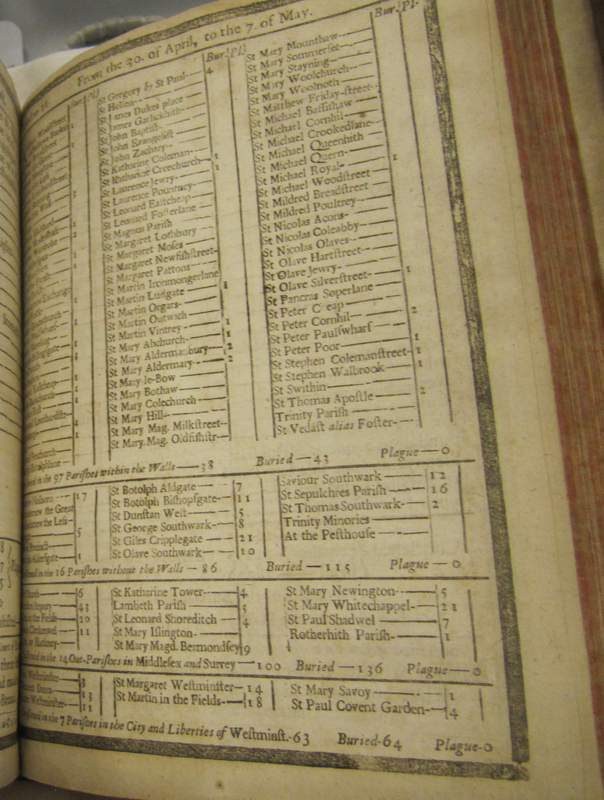 From the 30. of April, to the 7. of May.
Bur. Pl.
St Gregory by St Paul — 4
St Hellen
St James Dukes place
St James Garlickhith
St John Baptist
St John Evangelist
St John Zachary
St Katharine Coleman
St Katharine Creechurch — 1
St Laurence Jewry — 1
St Laurence Pountney
St Leonard Eastcheap
St Leonard Fosterlane
St Magnus Parish
St Margaret Lothbury
St Margaret Moses
St Margaret Newfishstreet
St Margaret Pattons
St Martin Ironmongerlane
St Martin Ludgate — 1
St Martin Orgars
St Martin Outwich
St Martin Vintrey — 1
St Mary Abchurch — 1
St Mary Aldermanbury — 2
St Mary Aldermary — 2
St Mary le-Bow
St Mary Bothaw
St Mary Colechurch
St Mary Hill
St Mary Mag. Milkstreet
St Mary Mag. Oldfishstr
Bur. Pl.
St Mary Mounthaw
St Mary Sommerset
St Mary Stayning
St Mary Woolchurch
St Mary Woolnoth
St Matthew Friday-street
St Michael Bassishaw
St Michael Cornhil
St Michael Crookedlane
St Michael Queenhith
St Michael Quern
St Michael Royal — 1
St Michael Woodstreet
St Mildred Breadstreet
St Mildred Poultrey
St Nicolas Acons
St Nicolas Coleabby
St Nicolas Olaves
St Olave Hartstreet
St Olave Jewry
St Olave Silverstreet — 1
St Pancras Soperlane
St Peter C eap
St Peter Cornhil — 2
St Peter Paulswharf
St Peter Poor
St Stephen Colemanstreet — 1
St Stephen Walbrook — 1
St Swithin
St Thomas Apostle — 2
Trinity Parish
St Vedast alias Foster
97 Parishes within the Walls — 38 Buried — 43 Plague — 0
17
5
1
St Botolph Aldgate — 7
St Botolph Bishopsgate — 11
St Dunstan West — 5
St George Southwark — 8
St Giles Cripplegate — 21
St Olave Southwark — 10
Saviour Southwark — 12
St Sepulchres Parish — 16
St Thomas Southwark — 2
Trinity Minories
At the Pesthouse
in the 16 Parishes without the Walls — 86 Buried — 115 Plague — 0
6
43
10
11
St Katharine Tower — 4
Lambeth Parish — 5
St Leonard Shoreditch — 4
St Mary Islington
St Mary Magd. Bermondsey 9
St Mary Newington — 5
St Mary Whitechappel — 21
St Paul Shadwel — 7
Rotherhith Parish — 1
in the 14 Out-Parishes in Middlesex and Surrey — 100 Buried — 136 Plague — 0
3
13
11
St Margaret Westminster — 14
St Martin in the Fields — 18
St Mary Savoy — 1
St Paul Covent Garden — 4
in the 7 Parishes in the City and Liberties of Westminst. - 63 Buried - 64 Plague - 0